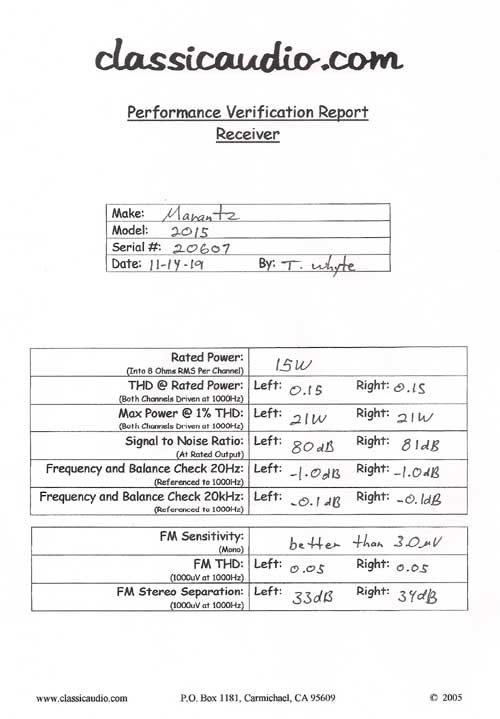 classicaudio.com
Performance Verification Report
Receiver
Make: Marantz
Model: 2015
Serial #: 20607
Date: 11-14-19 By: T. Whyte
Rated Power: 15W
(Into 8 Ohms RMS Per Channel)
THD @ Rated Power: Left: 0.15 Right: 0.15
(Both Channels Driven at 1000Hz)
Max Power @ 1% THD: Left: 21W Right: 21W
(Both Channels Driven at 1000Hz)
Signal to Noise Ratio: Left: 80dB Right: 81dB
(At Rated Output)
Frequency and Balance Check 20Hz: Left: -1.0dB Right: -1.0dB
(Referenced to 1000Hz)
Frequency and Balance Check 20kHz: Left: -0.1dB Right: -0.1dB
(Referenced to 1000Hz)
FM Sensitivity: better than 3.0uV
(Mono)
FM THD: Left: 0.05 Right: 0.05
(1000uV at 1000Hz)
FM Stereo Separation: Left: 33dB Right: 34dB
(1000uV at 1000Hz)
www.classicaudio.com P.O. Box 1181, Carmichael, CA 95609 © 2005